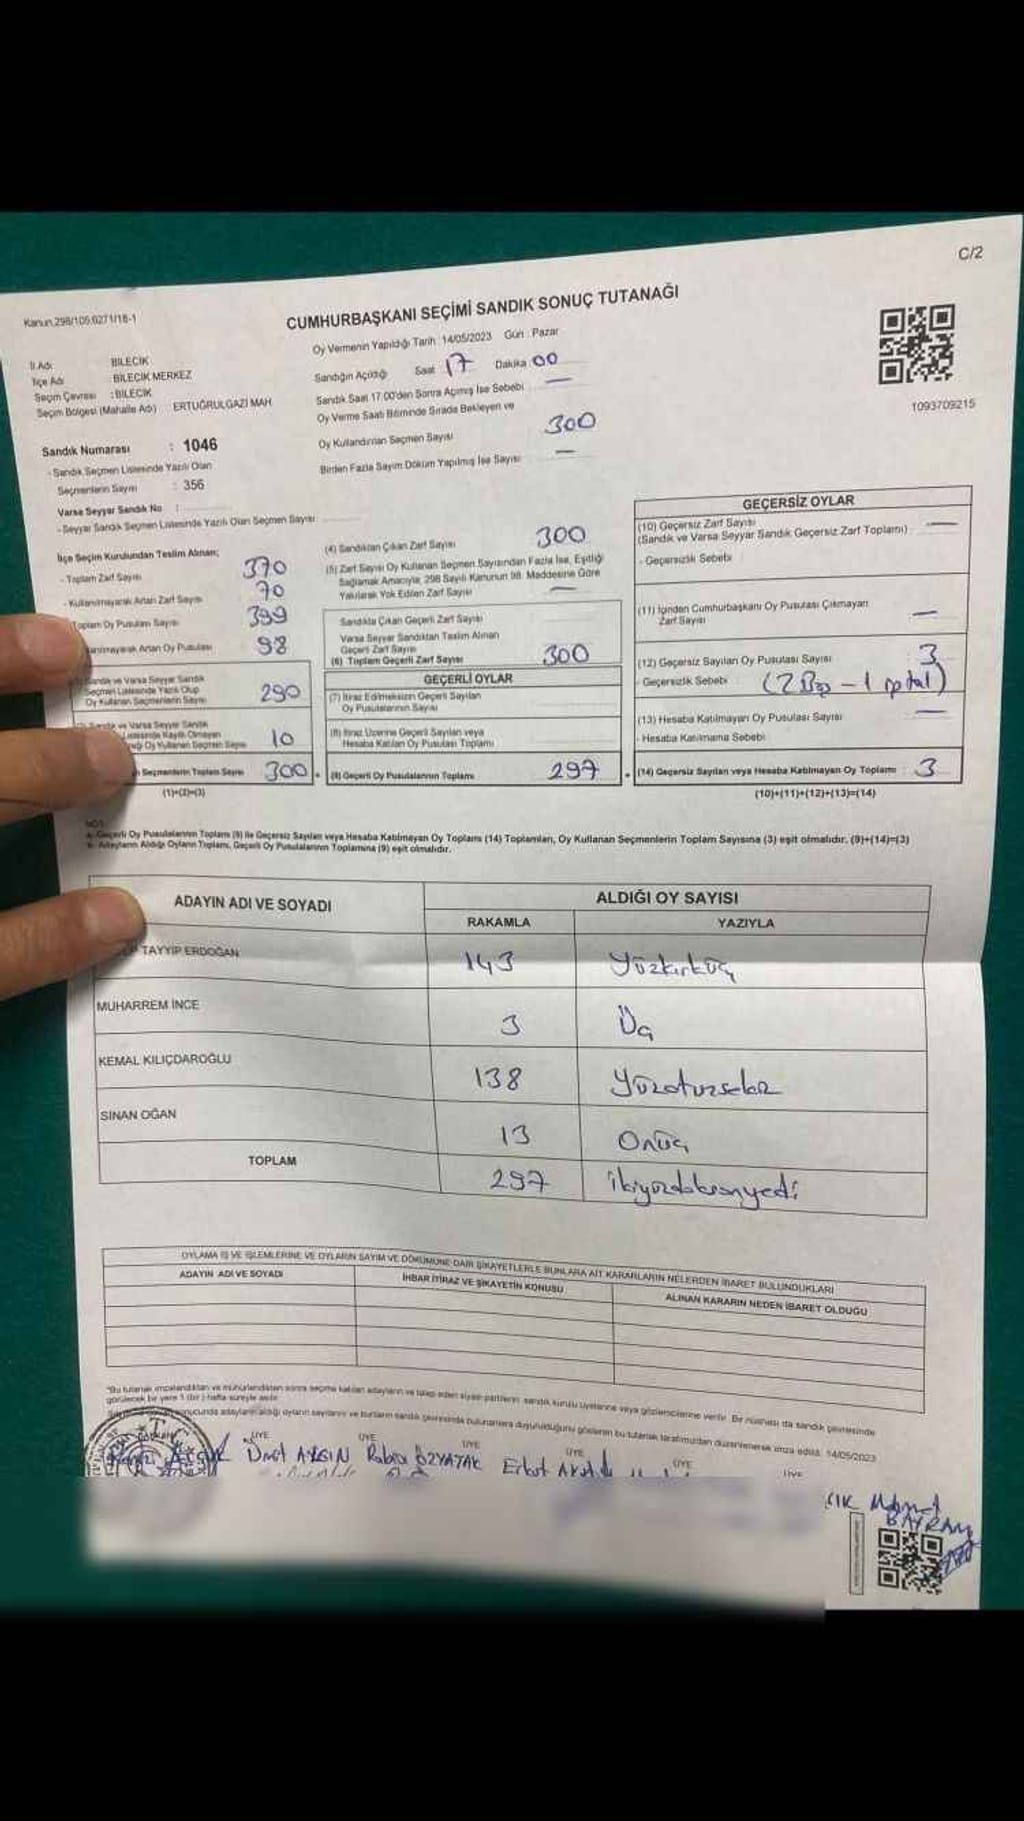 C/2
Kanun 298/105,6271/18-1
CUMHURBAŞKANI SEÇİMİ SANDIK SONUÇ TUTANAĞI
Oy Vermenin Yapıldığı Tarih : 14/05/2023 Gün : Pazar
İl Adı : BİLECİK
İlçe Adı : BİLECİK MERKEZ
Seçim Çevresi : BİLECİK
Seçim Bölgesi (Mahalle Adı) ERTUĞRULGAZİ MAH.
Sandığın Açıldığı Saat 17 Dakika : 00
Sandık Saat 17.00'den Sonra Açılmış İse Sebebi —
Oy Verme Saati Bitiminde Sırada Bekleyen ve
Oy Kullandırılan Seçmen Sayısı 300
Birden Fazla Sayım Döküm Yapılmış İse Sayısı —
1093709215
Sandık Numarası : 1046
- Sandık Seçmen Listesinde Yazılı Olan
Seçmenlerin Sayısı : 356
Varsa Seyyar Sandık No :
- Seyyar Sandık Seçmen Listesinde Yazılı Olan Seçmen Sayısı
İlçe Seçim Kurulundan Teslim Alınan;
- Toplam Zarf Sayısı 370
- Kullanılmayarak Artan Zarf Sayısı 70
Toplam Oy Pusulası Sayısı 399
Artan Oy Pusulası 98
Sandık ve Varsa Seyyar Sandık
Seçmen Listesinde Yazılı Olup
Oy Kullanan Seçmenlerin Sayısı 290
Sandık ve Varsa Seyyar Sandık
Kayıtlı Olmayan
Oy Kullanan Seçmen Sayısı 10
Seçmenlerin Toplam Sayısı 300
(1)+(2)=(3)
(4) Sandıktan Çıkan Zarf Sayısı 300
(5) Zarf Sayısı Oy Kullanan Seçmen Sayısından Fazla İse, Eşitliği
Sağlamak Amacıyla, 298 Sayılı Kanunun 98. Maddesine Göre
Yakılarak Yok Edilen Zarf Sayısı —
Sandıkta Çıkan Geçerli Zarf Sayısı
Varsa Seyyar Sandıktan Teslim Alınan
Geçerli Zarf Sayısı
(6) Toplam Geçerli Zarf Sayısı 300
GEÇERLİ OYLAR
(7) İtiraz Edilmeksizin Geçerli Sayılan
Oy Pusulalarının Sayısı
(8) İtiraz Üzerine Geçerli Sayılan veya
Hesaba Katılan Oy Pusulası Toplamı
(9) Geçerli Oy Pusulalarının Toplamı 297
GEÇERSİZ OYLAR
(10) Geçersiz Zarf Sayısı —
(Sandık ve Varsa Seyyar Sandık Geçersiz Zarf Toplamı)
- Geçersizlik Sebebi
(11) İçinden Cumhurbaşkanı Oy Pusulası Çıkmayan
Zarf Sayısı —
(12) Geçersiz Sayılan Oy Pusulası Sayısı 3
- Geçersizlik Sebebi (2 Boş - 1 iptal)
(13) Hesaba Katılmayan Oy Pusulası Sayısı —
- Hesaba Katılmama Sebebi
(14) Geçersiz Sayılan veya Hesaba Katılmayan Oy Toplamı : 3
(10)+(11)+(12)+(13)=(14)
NOT:
a- Geçerli Oy Pusulalarının Toplamı (9) ile Geçersiz Sayılan veya Hesaba Katılmayan Oy Toplamı (14) Toplamları, Oy Kullanan Seçmenlerin Toplam Sayısına (3) eşit olmalıdır. (9)+(14)=(3)
b- Adayların Aldığı Oyların Toplamı, Geçerli Oy Pusulalarının Toplamına (9) eşit olmalıdır.
ADAYIN ADI VE SOYADI
ALDIĞI OY SAYISI
RAKAMLA YAZIYLA
TAYYİP ERDOĞAN 143 Yüzkırküç
MUHARREM İNCE 3 Üç
KEMAL KILIÇDAROĞLU 138 Yüzotuzsekiz
SİNAN OĞAN 13 Onüç
TOPLAM 297 ikiyüzdoksanyedi
OYLAMA İŞ VE İŞLEMLERİNE VE OYLARIN SAYIM VE DÖKÜMÜNE DAİR ŞİKAYETLERLE BUNLARA AİT KARARLARIN NELERDEN İBARET BULUNDUKLARI
ADAYIN ADI VE SOYADI
İHBAR İTİRAZ VE ŞİKAYETİN KONUSU
ALINAN KARARIN NEDEN İBARET OLDUĞU
"Bu tutanak imzalandıktan ve mühürlendikten sonra seçime katılan adayların ve talep eden siyasi partilerin sandık kurulu üyelerine veya gözlemcilerine verilir. Bir nüshası da sandık çevresinde
görülecek bir yere 1 (bir) hafta süreyle asılır.
sonucunda adayların aldığı oyların sayılarını ve bunların sandık çevresinde bulunanlara duyurulduğunu gösteren bu tutanak tarafımızdan düzenlenerek imza edildi. 14/05/2023
ÜYE ÜYE ÜYE ÜYE ÜYE ÜYE
Ümit AYGIN
ÖZYATAK
BAYRAM